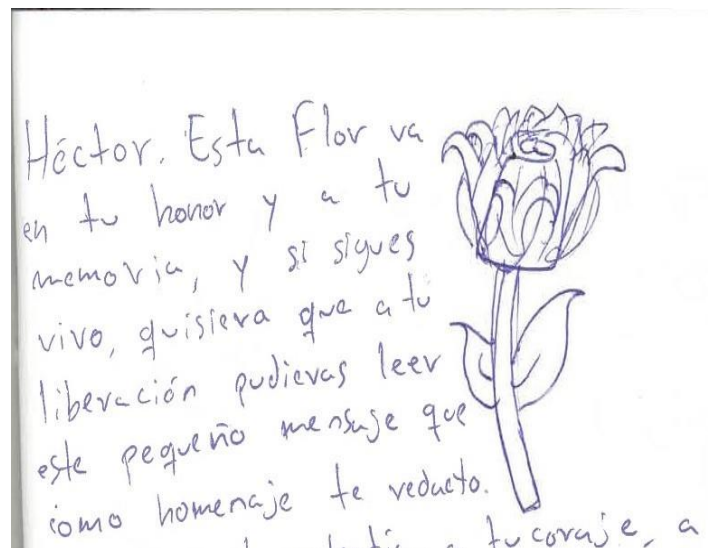 Héctor. Esta Flor va
en tu honor y a tu
memoria, y si sigues
vivo, quisiera que a tu
liberación pudieras leer
este pequeño mensaje que
como homenaje te redacto.
a tu coraje, a